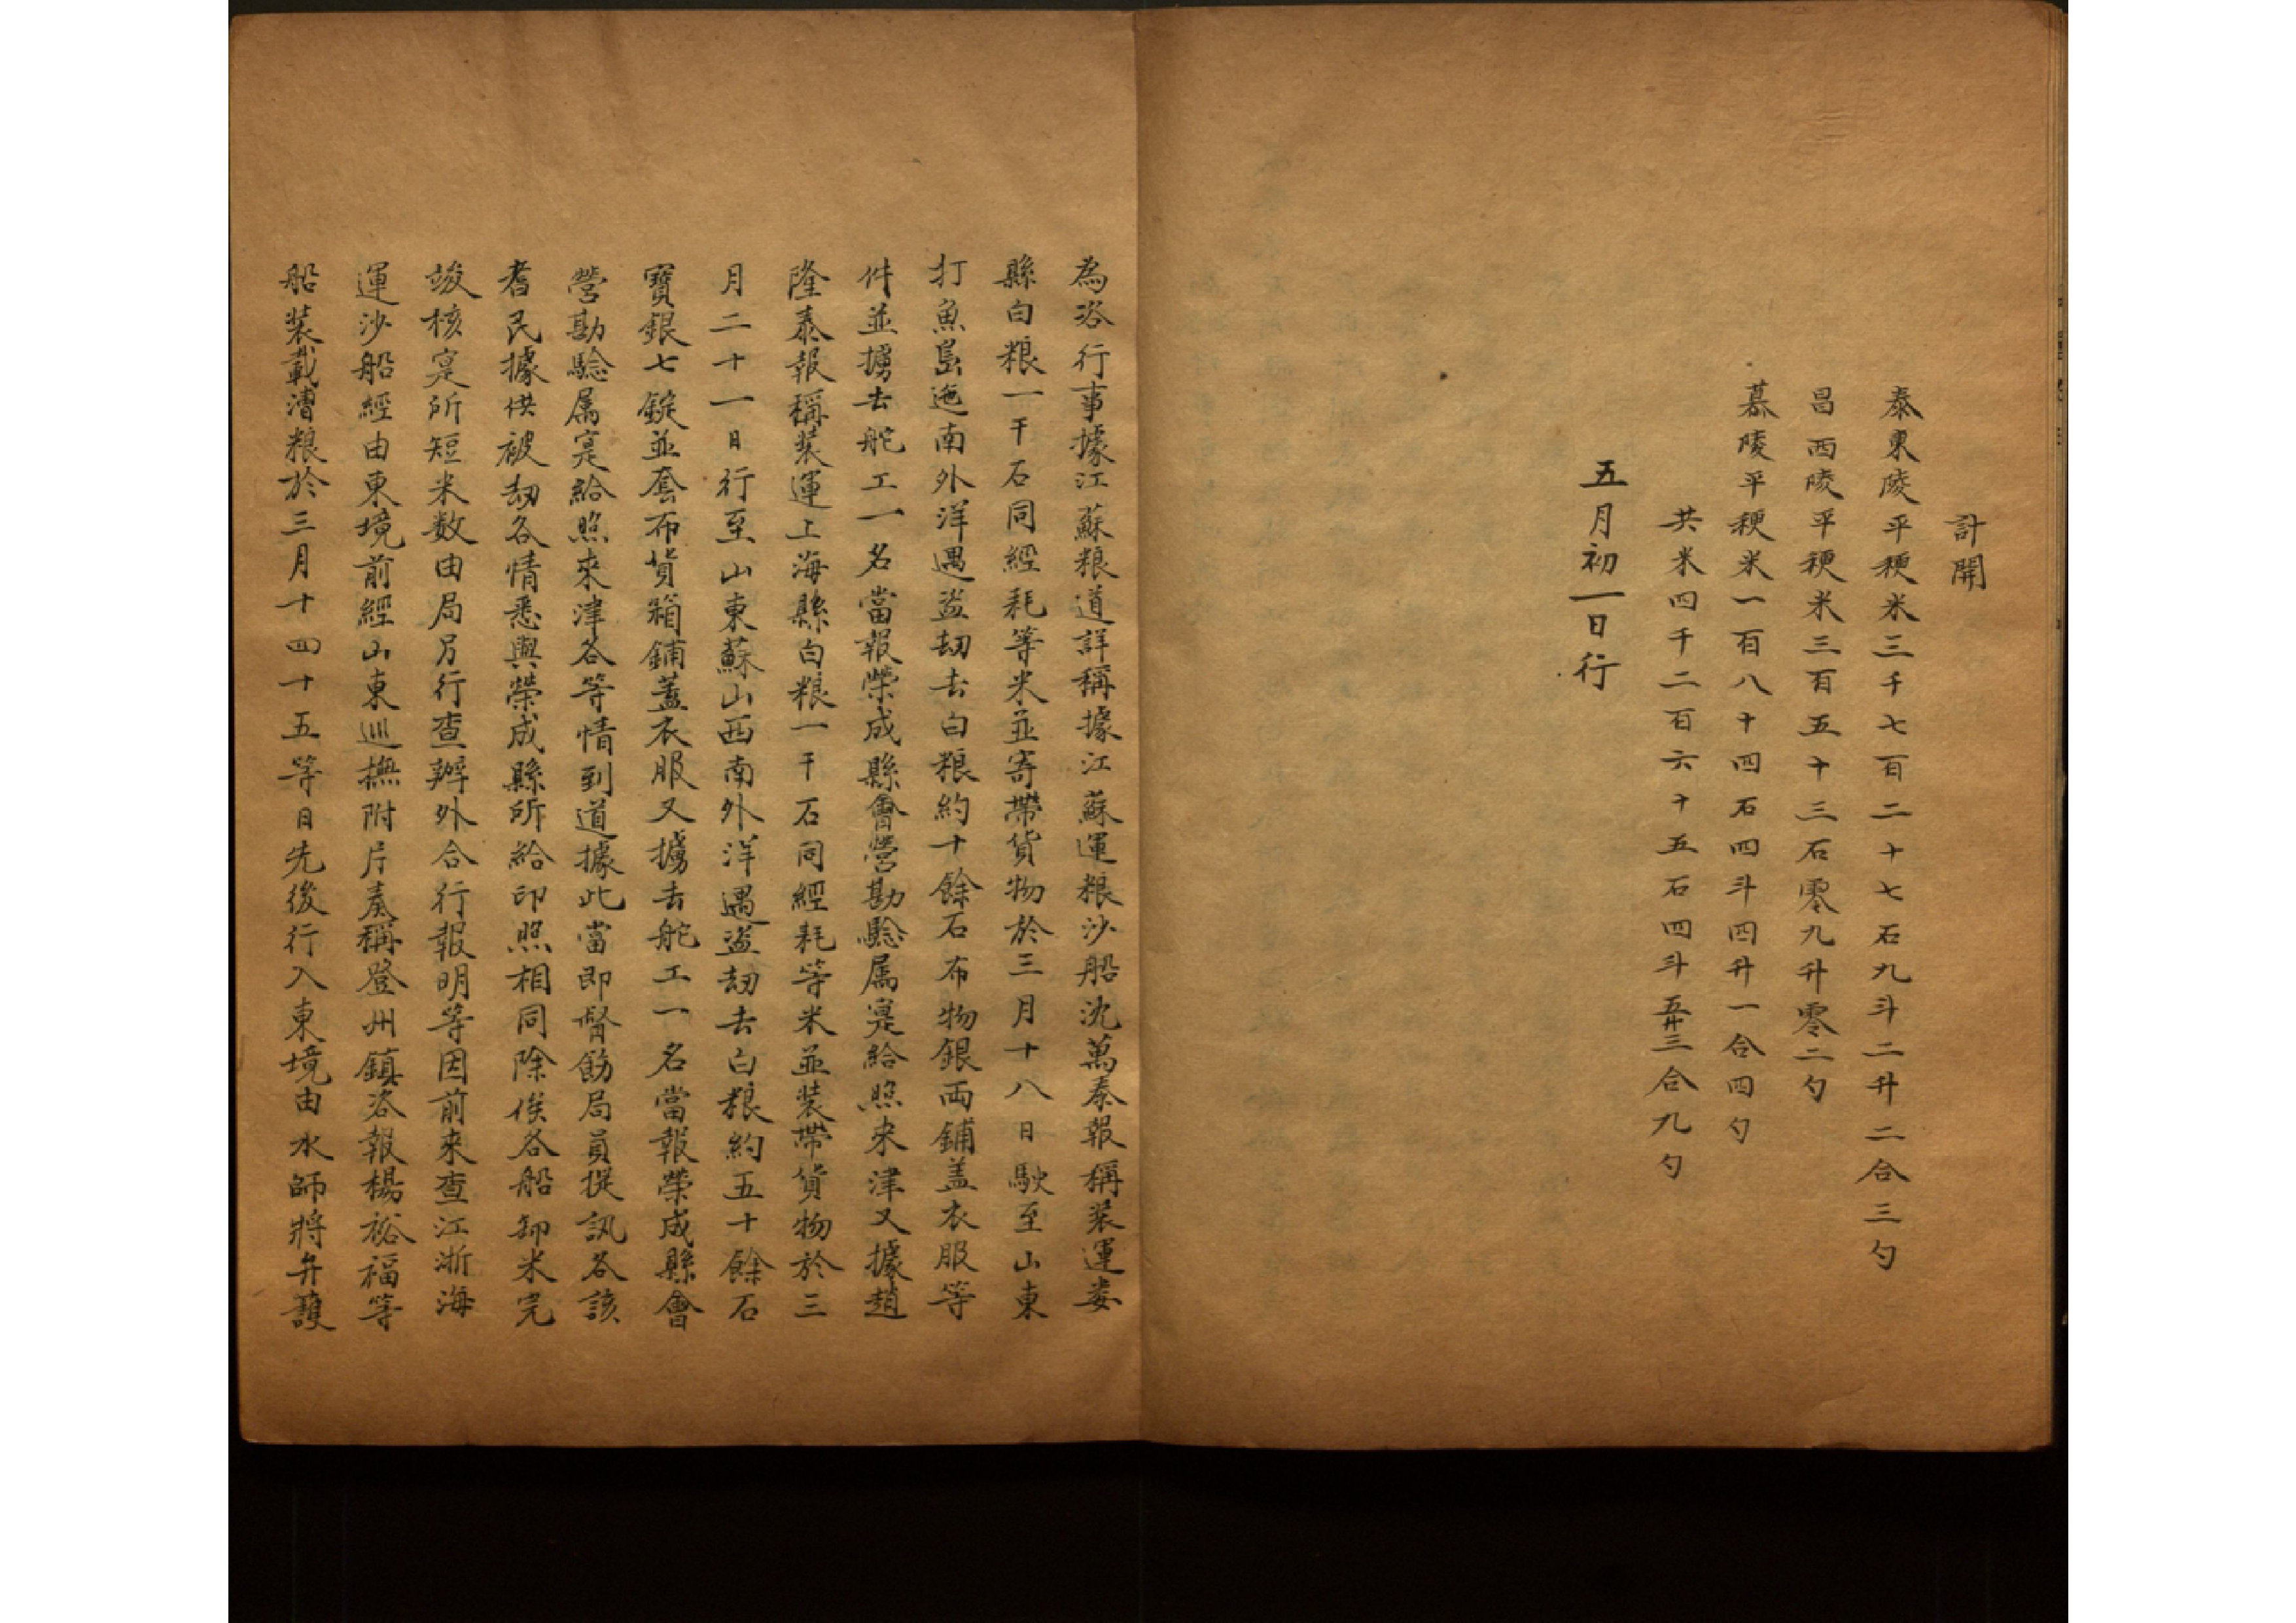 計開
泰東陵平稉米三千七百二十七石九斗二升二合三勺
昌西陵平稉米三百五十三石零九升零二勺
慕陵平稉米一百八十四石四斗四升一合四勺
共米四千二百六十五石四斗五升三合九勺
五月初一日行
為咨行事據江蘇粮道詳稱據江蘇運粮沙船沈萬泰報稱裝運婁
縣白粮一千石同經耗等米並寄帶貨物於三月十八日駛至山東
打魚島迤南外洋遇盜刼去白粮約十餘石布物銀両鋪盖衣服等
件並擄去舵工一名當報榮成縣會營勘騐属寔給照来津又據趙
隆泰報稱裝運上海縣白粮一千石同經耗等米並裝帶貨物於三
月二十一日行至山東蘇山西南外洋遇盜刼去白粮約五十餘石
寶銀七錠並套布貨箱鋪蓋衣服又擄去舵工一名當報榮成縣會
營勘騐属寔給照來津各等情到道據此當即督飭局員提訊各該
耆民據供被刼各情悉與榮成縣所給印照相同除俟各船卸米完
竣核寔所短米数由局另行查辦外合行報明等因前来查江浙海
運沙船經由東境前經山東巡撫附片奏稱登州鎮咨報楊裕福等
船裝載漕粮於三月十四十五等日先後行入東境由水師將弁護